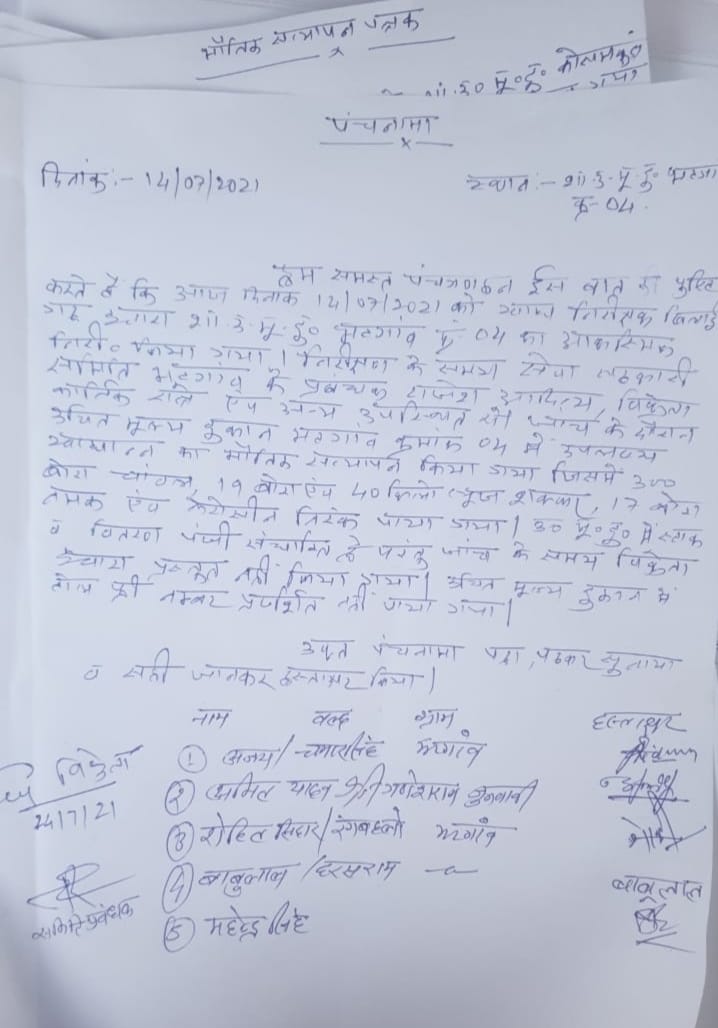 भौतिक सत्यापन पत्रक
शा.उ०मू०दु० कोसमकुं
पंचनामा
दिनांक:- 14/07/2021
स्थान:- शा.उ.मू.दु० भटगा
क्र-04.
हम समस्त पंचगणठन इस बात की पुष्टि
करते है कि आज दिनांक 14/07/2021 को खाद्य निरीक्षक बिलाई
गढ़ द्वारा शा.उ.मू.दु० भटगांव क्र 04 का आकस्मिक
निरी० किया गया। निरीक्षण के समय सेवा सहकारी
समिति भटगांव के प्रबंधक राजेश आदित्य, विक्रेता
कार्तिक एंव अन्य उपस्थित थे। जांच के दौरान
उचित मूल्य दुकान भटगांव क्रमांक 04 में उपलब्ध
खाद्यान्न का भौतिक सत्यापन किया गया जिसमें 300
बोरा चांवल, 19 बोरा एंव 40 किलो शक्कर, 17 बोरा
नमक एंव केरोसीन निरंक पाया गया। उ०मू०दु० में स्टाक
व वितरण पंजी संधारित है परंतु जांच के समय विक्रेता
द्वारा प्रस्तुत नही किया गया। उचित मूल्य दुकान में
टोल फ्री नम्बर प्रदर्शित नही पाया गया।
उक्त पंचनामा पढ़ा, पढकर सुनाया
व सही जानकर हस्ताक्षर किया।
नाम वल्द ग्राम हस्ताक्षर
विक्रेता
① अजय/ भटगांव
② अमित यादव श्री गणेशराम
③ रोहित सिदार/रंगबहलो भटगांव
④ बाबुलाल /हरसराम बाबूलाल
समिति प्रबंधक
⑤ महेन्द्र सिंह